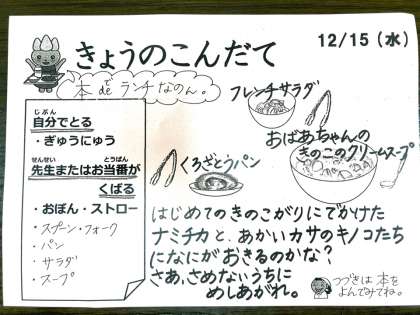 きょうのこんだて
12/15（水）
本deランチなのん。
で
フレンチサラダ
おばあちゃんの
きのこのクリームスープ
くろざとうパン
じぶん
自分でとる
・ぎゅうにゅう
せんせい とうばん
先生またはお当番が
くばる
・おぼん・ストロー
・スプーン・フォーク
・パン
・サラダ
・スープ
はじめてのきのこがりにでかけた
ナミチカと、あかいカサのキノコたち
になにがおきるのかな？
さあ、さめないうちに
めしあがれ。
つづきは本を
よんでみてね。